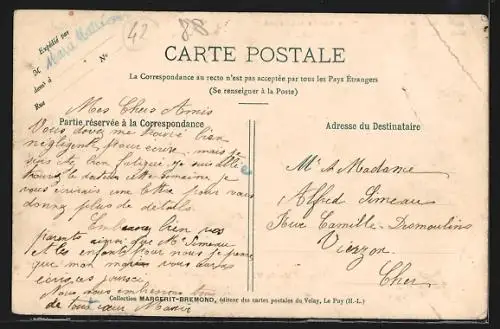 42
88
Expédié par
M
demt à
Rue
N°
CARTE POSTALE
La Correspondance au recto n'est pas acceptée par tous les Pays Étrangers
(Se renseigner à la Poste)
Mes Chers Amis
Partie réservée à la Correspondance
Vous devez me trouvé bien
négligent pour écrire mais je
suis
trouver le
vous écrirais une lettre pour vous
donny plus de détails.
Embrassez bien vos
parents ainsi que Mr Simeau
et les enfants pour nous je pense
que mon
Nous vous embrassons tous
de tout cœur
Adresse du Destinataire
Mr & Madame
Alfred Simeau
Rue Camille Desmoulins
Vierzon
Cher
Collection MARGERIT-BREMOND, éditeur des cartes postales du Velay, Le Puy (H.-L.)